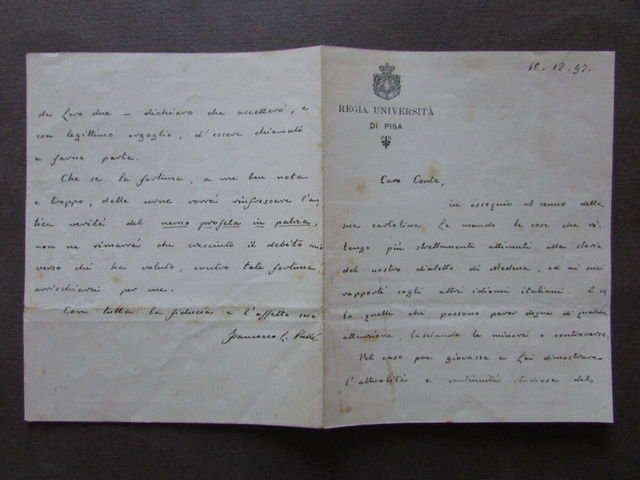 10.12.97.
REGIA UNIVERSITÀ
DI PISA
Caro Conte,
in ossequio al cenno della
sua cartolina Le mando le cose che ri-
tengo più strettamente attinenti alla storia
del nostro dialetto di Modena, ed ai suoi
rapporti cogli altri idiomi italiani. E so-
lo quelle che possono parer degne di qualche
attenzione, lasciando le minori e controverse.
Pel caso poi giovasse a Lei dimostrare
l'attualità e continuità studiosa del,
da Loro due – dichiaro che accetterò, e
con legittimo orgoglio, d'essere chiamato
a farne parte.
Che se la fortuna, a me ben nota
e troppo, delle urne vorrà rinfrescare l'an
tica verità del nemo profeta in patria,
non ne rimarrà che cresciuto il debito mio
verso chi ha voluto, contro tale fortuna,
arrischiarsi per me.
Con tutta la fiducia e l'affetto suo
Francesco L. Pullé